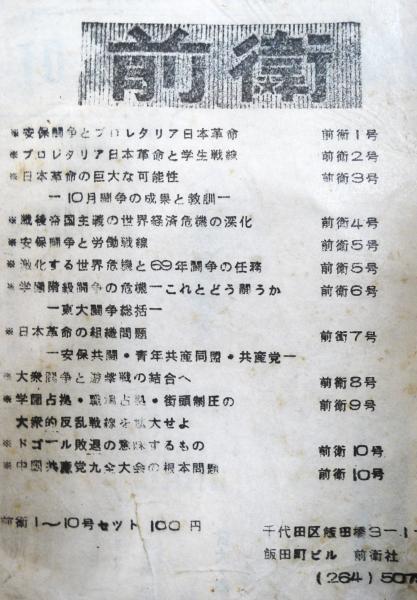 前衛
※安保闘争とプロレタリア日本革命 前衛1号
※プロレタリア日本革命と学生戦線 前衛2号
※日本革命の巨大な可能性 前衛3号
―10月闘争の成果と教訓―
※戦後帝国主義の世界経済危機の深化 前衛4号
※安保闘争と労働戦線 前衛5号
※激化する世界危機と69年闘争の任務 前衛5号
※学園階級闘争の危機―これとどう闘うか 前衛6号
―東大闘争総括―
※日本革命の組織問題 前衛7号
―安保共闘・青年共産同盟・共産党―
※大衆闘争と遊撃戦の結合へ 前衛8号
※学園占拠・職場占拠・街頭制圧の 前衛9号
大衆的反乱戦線を拡大せよ
※ドゴール敗退の意味するもの 前衛10号
※中国共産党九全大会の根本問題 前衛10号
前衛1〜10号セット 100円
千代田区飯田橋3-1-
飯田町ビル 前衛社
(264)507